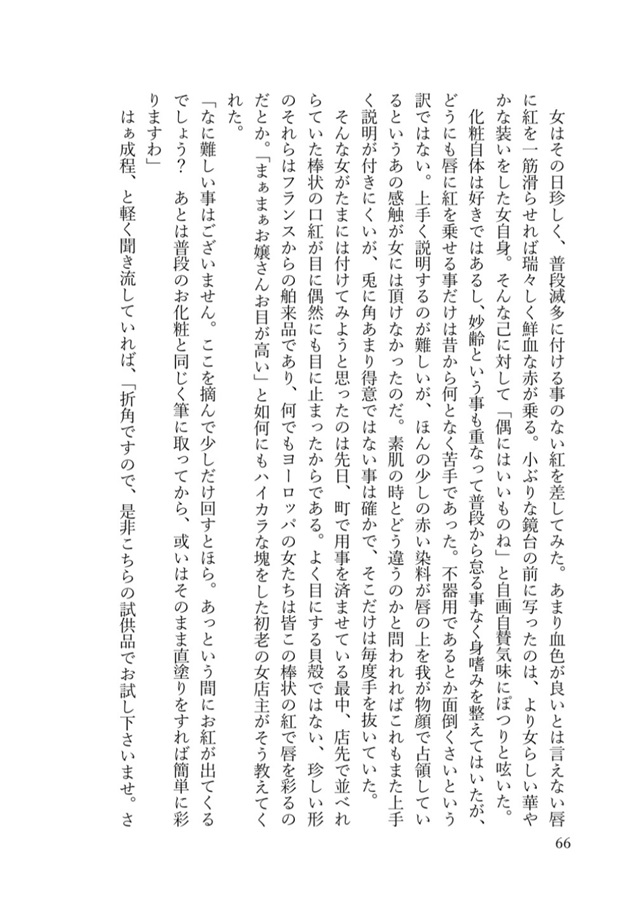 女はその日珍しく、普段滅多に付ける事のない紅を差してみた。あまり血色が良いとは言えない唇
に紅を一筋滑らせれば瑞々しく鮮血な赤が乗る。小ぶりな鏡台の前に写ったのは、より女らしい華や
かな装いをした女自身。そんな己に対して「偶にはいいものね」と自画自賛気味にぽつりと呟いた。
化粧自体は好きではあるし、妙齢という事も重なって普段から怠る事なく身嗜みを整えてはいたが、
どうにも唇に紅を乗せる事だけは昔から何となく苦手であった。不器用であるとか面倒くさいという
訳ではない。上手く説明するのが難しいが、ほんの少しの赤い染料が唇の上を我が物顔で占領してい
るというあの感触が女には頂けなかったのだ。素肌の時とどう違うのかと問われればこれもまた上手
く説明が付きにくいが、兎に角あまり得意ではない事は確かで、そこだけは毎度手を抜いていた。
そんな女がたまには付けてみようと思ったのは先日、町で用事を済ませている最中、店先で並べれ
らていた棒状の口紅が目に偶然にも目に止まったからである。よく目にする貝殻ではない、珍しい形
のそれらはフランスからの舶来品であり、何でもヨーロッパの女たちは皆この棒状の紅で唇を彩るの
だとか。「まぁまぁお嬢さんお目が高い」と如何にもハイカラな塊をした初老の女店主がそう教えてく
れた。
「なに難しい事はございません。ここを摘んで少しだけ回すとほら。あっという間にお紅が出てくる
でしょう？　あとは普段のお化粧と同じく筆に取ってから、或いはそのまま直塗りをすれば簡単に彩
りますわ」
はぁ成程、と軽く聞き流していれば、「折角ですので、是非こちらの試供品でお試し下さいませ。さ
66